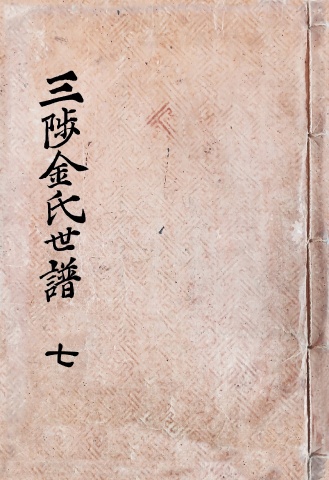 三陟金氏世譜 七